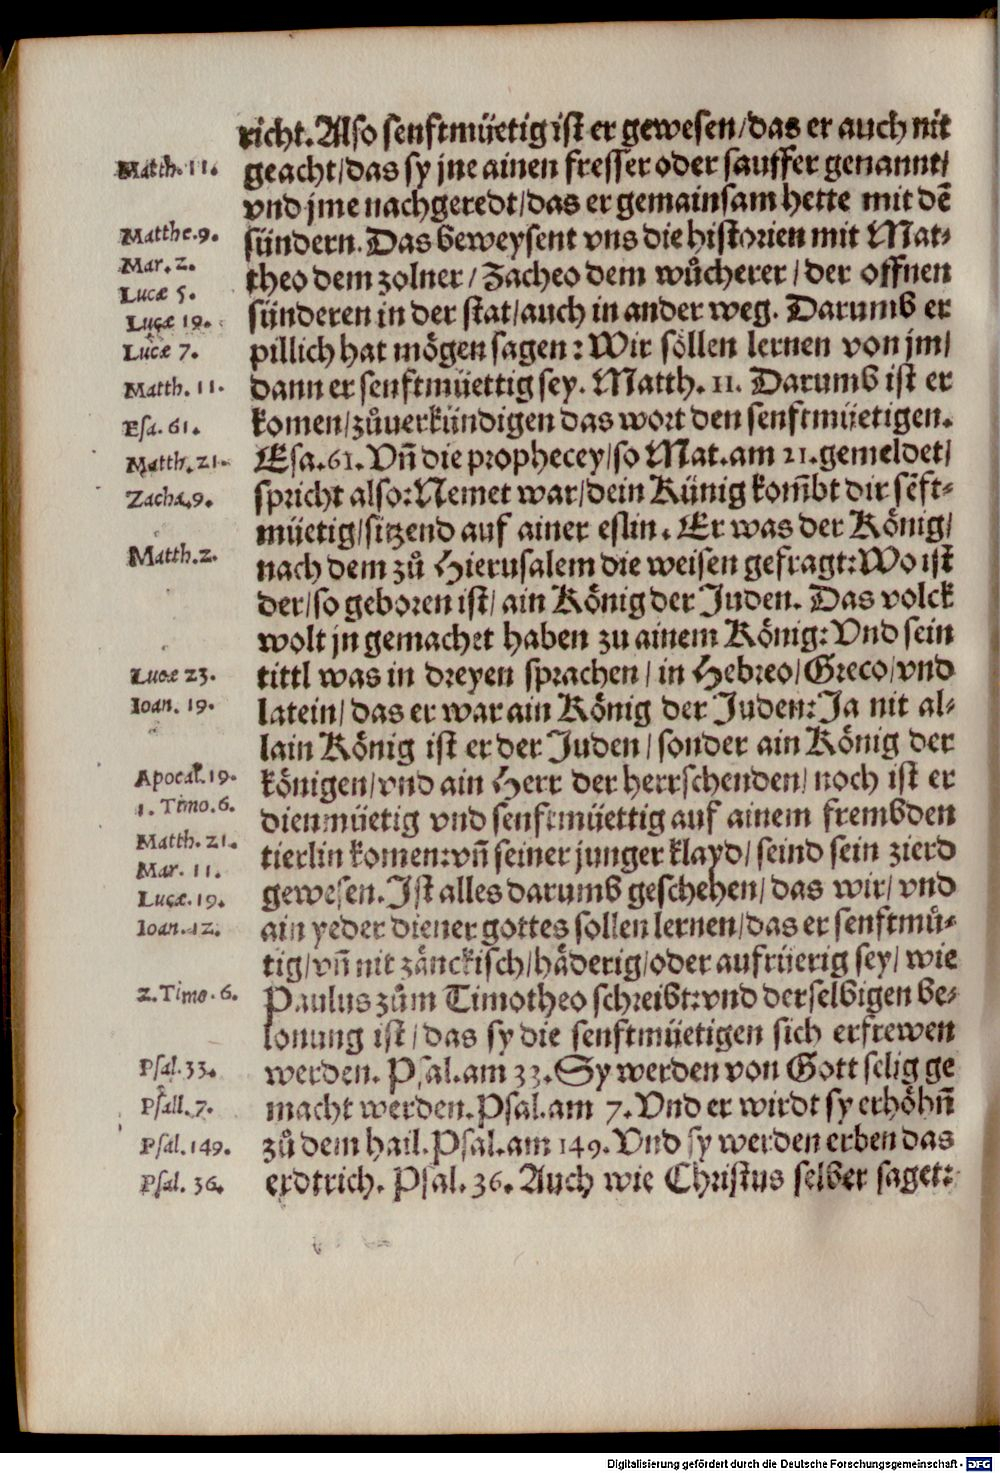 richt. Also senftmüetig ist er gewesen/das er auch nit
Matth. 11. geacht/das sy jne ainen fresser oder sauffer genannt/
vnd jme nachgeredt/das er gemainsam hette mit dē
Matthe. 9. sündern. Das beweysent vns die historien mit Mat-
Mar. 2. theo dem zolner/Zacheo dem wůcherer/der offnen
Lucæ 5. sünderen in der stat/auch in ander weg. Darumb er
Lucæ 19.
Lucæ 7. pillich hat mögen sagen: Wir söllen lernen von jm/
Matth. 11. dann er senftmüettig sey. Matth. 11. Darumb ist er
Esa. 61. komen/zůuerkündigen das wort den senftmüetigen.
Matth. 21. Esa. 61. Vn̄ die prophecey/so Mat. am 21. gemeldet/
Zacha. 9. spricht also: Nemet war/dein Künig kom̄bt dir sēft-
müetig/sitzend auf ainer eslin. Er was der König/
Matth. 2. nach dem zů Hierusalem die weisen gefragt: Wo ist
der/so geboren ist/ain König der Juden. Das volck
wolt jn gemachet haben zu ainem König: Vnd sein
Lucæ 23. tittl was in dreyen sprachen/in Hebreo/Greco/vnd
Ioan. 19. latein/das er war ain König der Juden: Ja nit al-
lain König ist er der Juden/sonder ain König der
Apocal. 19. königen/vnd ain Herr der herrschenden/noch ist er
1. Timo. 6. diemüetig vnd senftmüettig auf ainem frembden
Matth. 21. tierlin komen: vn̄ seiner junger klayd/seind sein zierd
Mar. 11. gewesen. Ist alles darumb geschehen/das wir/vnd
Lucæ. 19.
Ioan. 12. ain yeder diener gottes sollen lernen/das er senftmů-
tig/vn̄ nit zänckisch/häderig/oder aufrüerig sey/wie
2. Timo. 6. Paulus zům Timotheo schreibt: vnd derselbigen be-
lonung ist/das sy die senftmüetigen sich erfrewen
Psal. 33. werden. Psal. am 33. Sy werden von Gott selig ge
Psall. 7. macht werden. Psal. am 7. Vnd er wirdt sy erhöhn̄
Psal. 149. zů dem hail. Psal. am 149. Vnd sy werden erben das
Psal. 36. erdtrich. Psal. 36. Auch wie Christus selber saget:
Digitalisierung gefördert durch die Deutsche Forschungsgemeinschaft - DFG